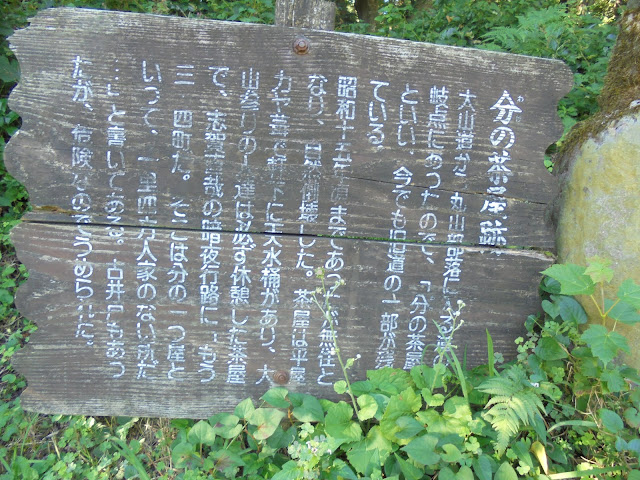 分の茶屋跡
大山道から丸山部落に入る
岐点にあったので、「分の茶屋
といい、今でも旧道の一部が残
ている。
昭和十五年頃まであったが無住と
なり、自然倒壊した。茶屋は平屋
カヤ葺で軒下に天水桶があり、大
山参りの人達は必ず休憩した茶屋
で、志賀直哉の暗夜行路に「もう
三 四町だ。そこは分の一つ屋と
いって、一里四方人家のない所だ
…」と書いてある。古井戸もあっ
たが、危険なのでうめられた。